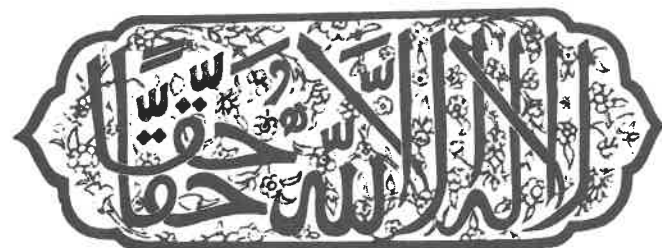 لا اله الا الله حقًا حقًا